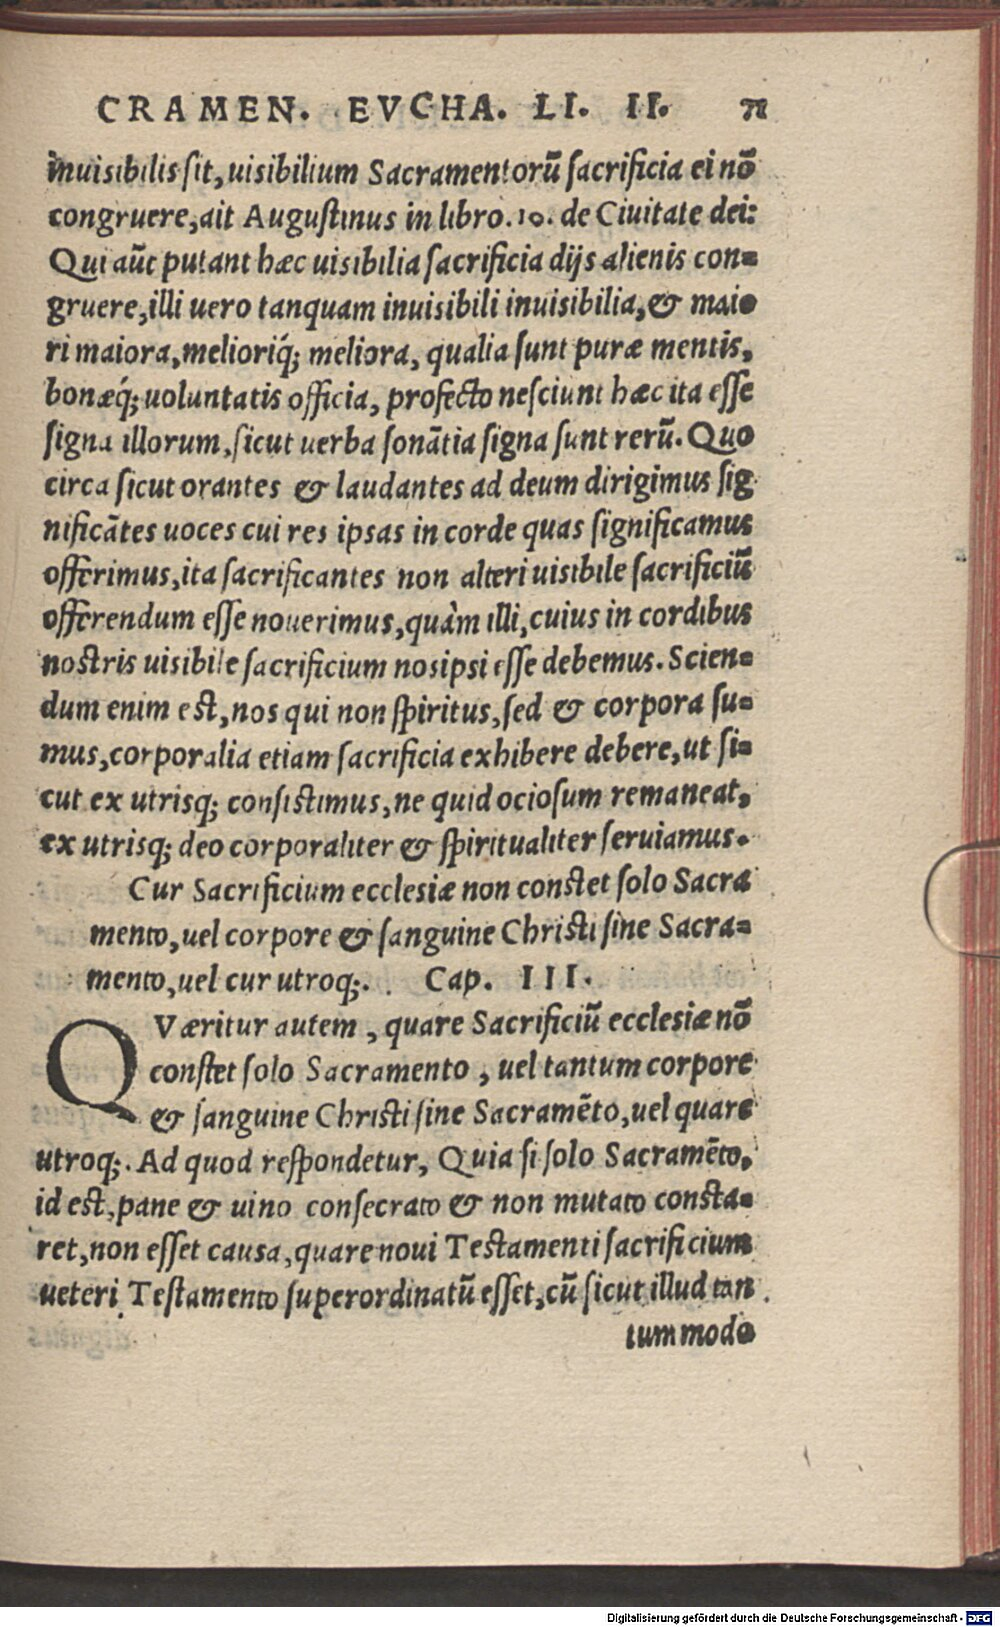 CRAMEN. EVCHA. LI. II. 71
inuisibilis sit, uisibilium Sacramentorū sacrificia ei nō
congruere, ait Augustinus in libro. 10. de Ciuitate dei:
Qui aūt putant hæc uisibilia sacrificia dijs alienis con=
gruere, illi uero tanquam inuisibili inuisibilia, & maio
ri maiora, melioriq́; meliora, qualia sunt puræ mentis,
bonæq́; uoluntatis officia, profecto nesciunt hæc ita esse
signa illorum, sicut uerba sonātia signa sunt rerū. Quo
circa sicut orantes & laudantes ad deum dirigimus sig
nificātes uoces cui res ipsas in corde quas significamus
offerimus, ita sacrificantes non alteri uisibile sacrificiū
offerendum esse nouerimus, quàm illi, cuius in cordibus
nostris uisibile sacrificium nosipsi esse debemus. Scien=
dum enim est, nos qui non spiritus, sed & corpora su=
mus, corporalia etiam sacrificia exhibere debere, ut si=
cut ex utrisq; consistimus, ne quid ociosum remaneat,
ex utrisq; deo corporaliter & spiritualiter seruiamus.
Cur Sacrificium ecclesiæ non constet solo Sacra
mento, uel corpore & sanguine Christi sine Sacra=
mento, uel cur utroq;. Cap. III.
QVæritur autem, quare Sacrificiū ecclesiæ nō
constet solo Sacramento, uel tantum corpore
& sanguine Christi sine Sacramēto, uel quare
utroq;. Ad quod respondetur, Quia si solo Sacramēto,
id est, pane & uino consecrato & non mutato consta=
ret, non esset causa, quare noui Testamenti sacrificium
ueteri Testamento superordinatū esset, cū sicut illud tan
tummodo
Digitalisierung gefördert durch die Deutsche Forschungsgemeinschaft - DFG